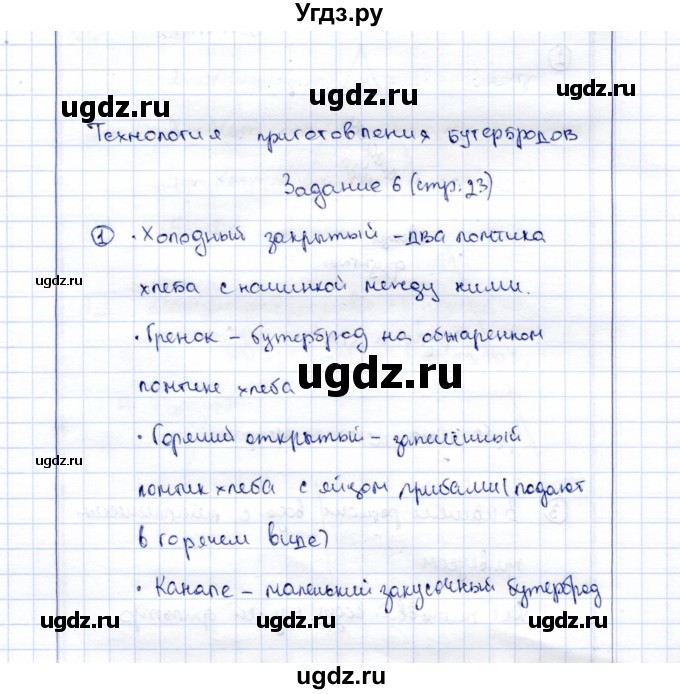 Угдз.ру
ugdz.ru ugdz.ru ugdz.ru
Технология приготовления бутербродов
Задание 6 (стр. 23)
1 · Холодный закрытый – два ломтика
ugdz.ru хлеба с начинкой между ними. ugdz.ru
· Гренок – бутерброд на обжаренном
ugdz.ru
ломтике хлеба
· Горячий открытый – запечённый
ugdz.ru ломтик хлеба с яйцом грибами (подают ugdz.ru
в горячем виде)
· Канапе – маленький закусочный бутерброд
ugdz.ru ugdz.ru ugdz.ru
ugdz.ru ugdz.ru